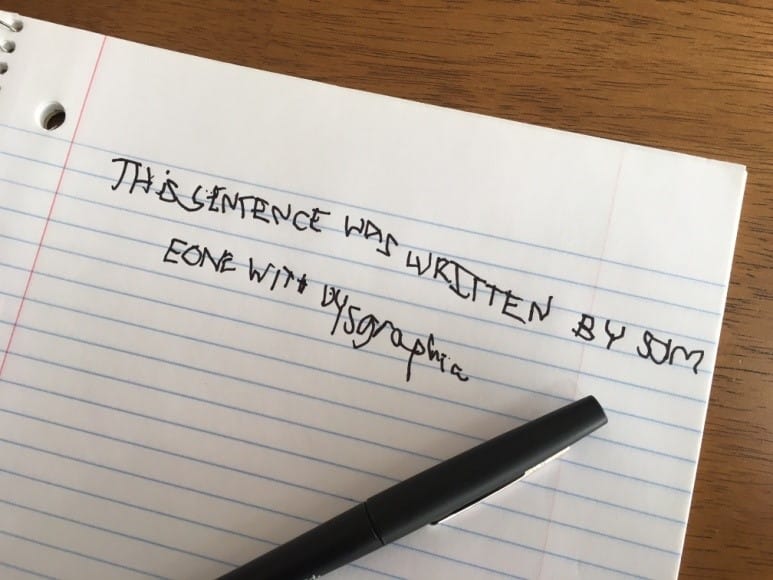 THiS SENTENCE WAS WRITTEN BY SOM
EONE WITH DYSgraphia